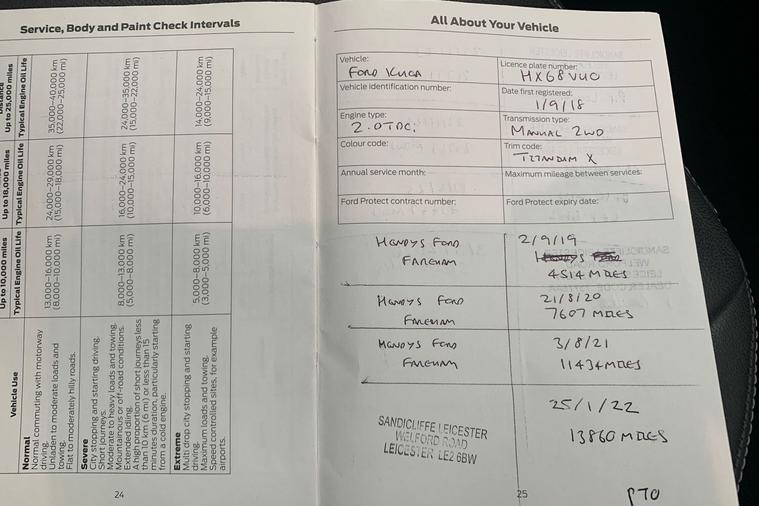 Service, Body and Paint Check Intervals
Vehicle Use
Up to 10,000 miles
Typical Engine Oil Life
Up to 15,000 miles
Typical Engine Oil Life
Distance
Up to 25,000 miles
Typical Engine Oil Life
Normal
Normal commuting with motorway
driving.
Unladen to moderate loads and
towing.
Flat to moderately hilly roads.
13,000–16,000 km
(8,000–10,000 mi)
24,000–29,000 km
(15,000–18,000 mi)
35,000–40,000 km
(22,000–25,000 mi)
Severe
City stopping and starting driving.
Short journeys.
Moderate to heavy loads and towing.
Mountainous or off-road conditions.
Extended idling.
A high proportion of short journeys less
than 10 km (6 mi) or less than 15
minutes duration, particularly starting
from a cold engine.
8,000–13,000 km
(5,000–8,000 mi)
16,000–24,000 km
(10,000–15,000 mi)
24,000–35,000 km
(15,000–22,000 mi)
Extreme
Multi drop city stopping and starting
driving.
Maximum loads and towing.
Speed controlled sites, for example
airports.
5,000–8,000 km
(3,000–5,000 mi)
10,000–16,000 km
(6,000–10,000 mi)
14,000–24,000 km
(9,000–15,000 mi)
24
All About Your Vehicle
Vehicle:
FORD KUGA
Licence plate number:
HX68VUO
Vehicle identification number:
Date first registered:
1/9/18
Engine type:
2.0TDCi
Transmission type:
MANUAL 2WD
Colour code:
Trim code:
TITANIUM X
Annual service month:
Maximum mileage between services:
Ford Protect contract number:
Ford Protect expiry date:
HENDYS FORD 2/9/19
FAREHAM
4514 MILES
HENDYS FORD 21/8/20
FAREHAM 7607 MILES
HENDYS FORD 3/8/21
FAREHAM 11434 MILES
25/1/22
SANDICLIFFE LEICESTER
WELFORD ROAD
LEICESTER LE2 6BW
13860 MILES
25
PTO